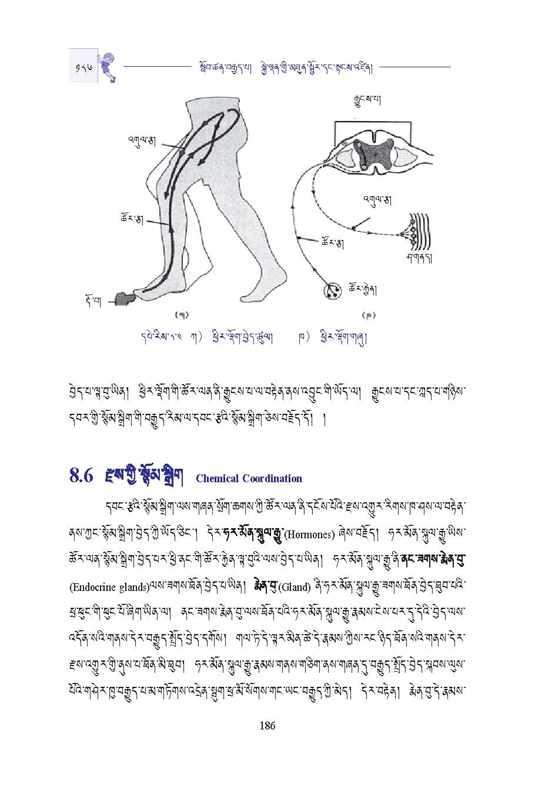 ༡༨༦ སློབ་ཚན་བརྒྱད་པ། སྐྱེ་ལྡན་གྱི་མཐུན་སྦྱོར་དང་སྟངས་འཛིན།
རྒྱུངས་པ།
འགུལ་རྩ།
འགུལ་རྩ།
ཚོར་རྩ།
ཚོར་རྩ།
ཤ་གནད།
ཚོར་རྐྱེན།
རྡོ་བ།
(ཀ) (ཁ)
དཔེ་རིས་ ཀ) ཕྱིར་ལྡོག་བྱེད་ཚུལ། ཁ) ཕྱིར་ལྡོག་གཞུ།
བྱེད་པ་ལྟ་བུ་ཡིན། ཕྱིར་ལྡོག་གི་ཚོར་ལན་ནི་རྒྱུངས་པ་ལ་བརྟེན་ནས་འབྱུང་གི་ཡོད་ལ། རྒྱུངས་པ་དང་ཀླད་པ་གཉིས་
དབར་གྱི་སྙོམ་སྒྲིག་གི་བརྒྱུད་རིམ་ལ་དབང་རྩའི་སྙོམ་སྒྲིག་ཅེས་བརྗོད་དོ། །
8.6 རྫས་ཀྱི་སྙོམ་སྒྲིག Chemical Coordination
དབང་རྩའི་སྙོམ་སྒྲིག་ལས་གཞན་སྲོག་ཆགས་ཀྱི་ཚོར་ལན་ནི་དངོས་པོའི་རྫས་འགྱུར་རིགས་ཁ་ཤས་ལ་བརྟེན་
ནས་ཀྱང་སྙོམ་སྒྲིག་བྱེད་ཀྱི་ཡོད་ཅིང་། དེར་ཧར་མོན་སྐུལ་རྒྱུ་(Hormones) ཞེས་བརྗོད། ཧར་མོན་སྐུལ་རྒྱུ་ཡིས་
ཚོར་ལན་སྙོམ་སྒྲིག་བྱེད་པར་ཕྱི་ནང་གི་ཚོར་རྐྱེན་ལྟ་བུའི་ལས་བྱེད་པ་ཡིན། ཧར་མོན་སྐུལ་རྒྱུ་ནི་ནང་ཟགས་རྨེན་བུ་
(Endocrine glands)ལས་ཟགས་ཐོན་བྱེད་པ་ཡིན། རྨེན་བུ་(Gland) ནི་ཧར་མོན་སྐུལ་རྒྱུ་ཟགས་ཐོན་བྱེད་ཐུབ་པའི་
ཕྲ་ཕུང་གི་ཕུང་པོ་ཞིག་ཡིན་ལ། ནང་ཟགས་རྨེན་བུ་ལས་ཐོན་པའི་ཧར་མོན་སྐུལ་རྒྱུ་རྣམས་ངེས་པར་དུ་དེའི་བྱེད་ལས་
འདོན་སའི་གནས་དེར་བརྒྱུད་སྤྲོད་བྱེད་དགོས། གལ་ཏེ་དེ་ལྟར་མིན་ཚེ་དེ་རྣམས་ཀྱིས་རང་ཉིད་ཐོན་སའི་གནས་དེར་
རྫས་འགྱུར་གྱི་ནུས་པ་ཐོན་མི་ཐུབ། ཧར་མོན་སྐུལ་རྒྱུ་རྣམས་གནས་གཅིག་ནས་གཞན་དུ་བརྒྱུད་སྤྲོད་བྱེད་སྐབས་ལུས་
པོའི་གཤེར་ཁུ་བརྒྱུད་པ་མ་གཏོགས་འདྲེན་སྦུག་ཕྲ་མོ་སོགས་གང་ཡང་བརྒྱུད་ཀྱི་མེད། དེར་བརྟེན། རྨེན་བུ་དེ་རྣམས་
186